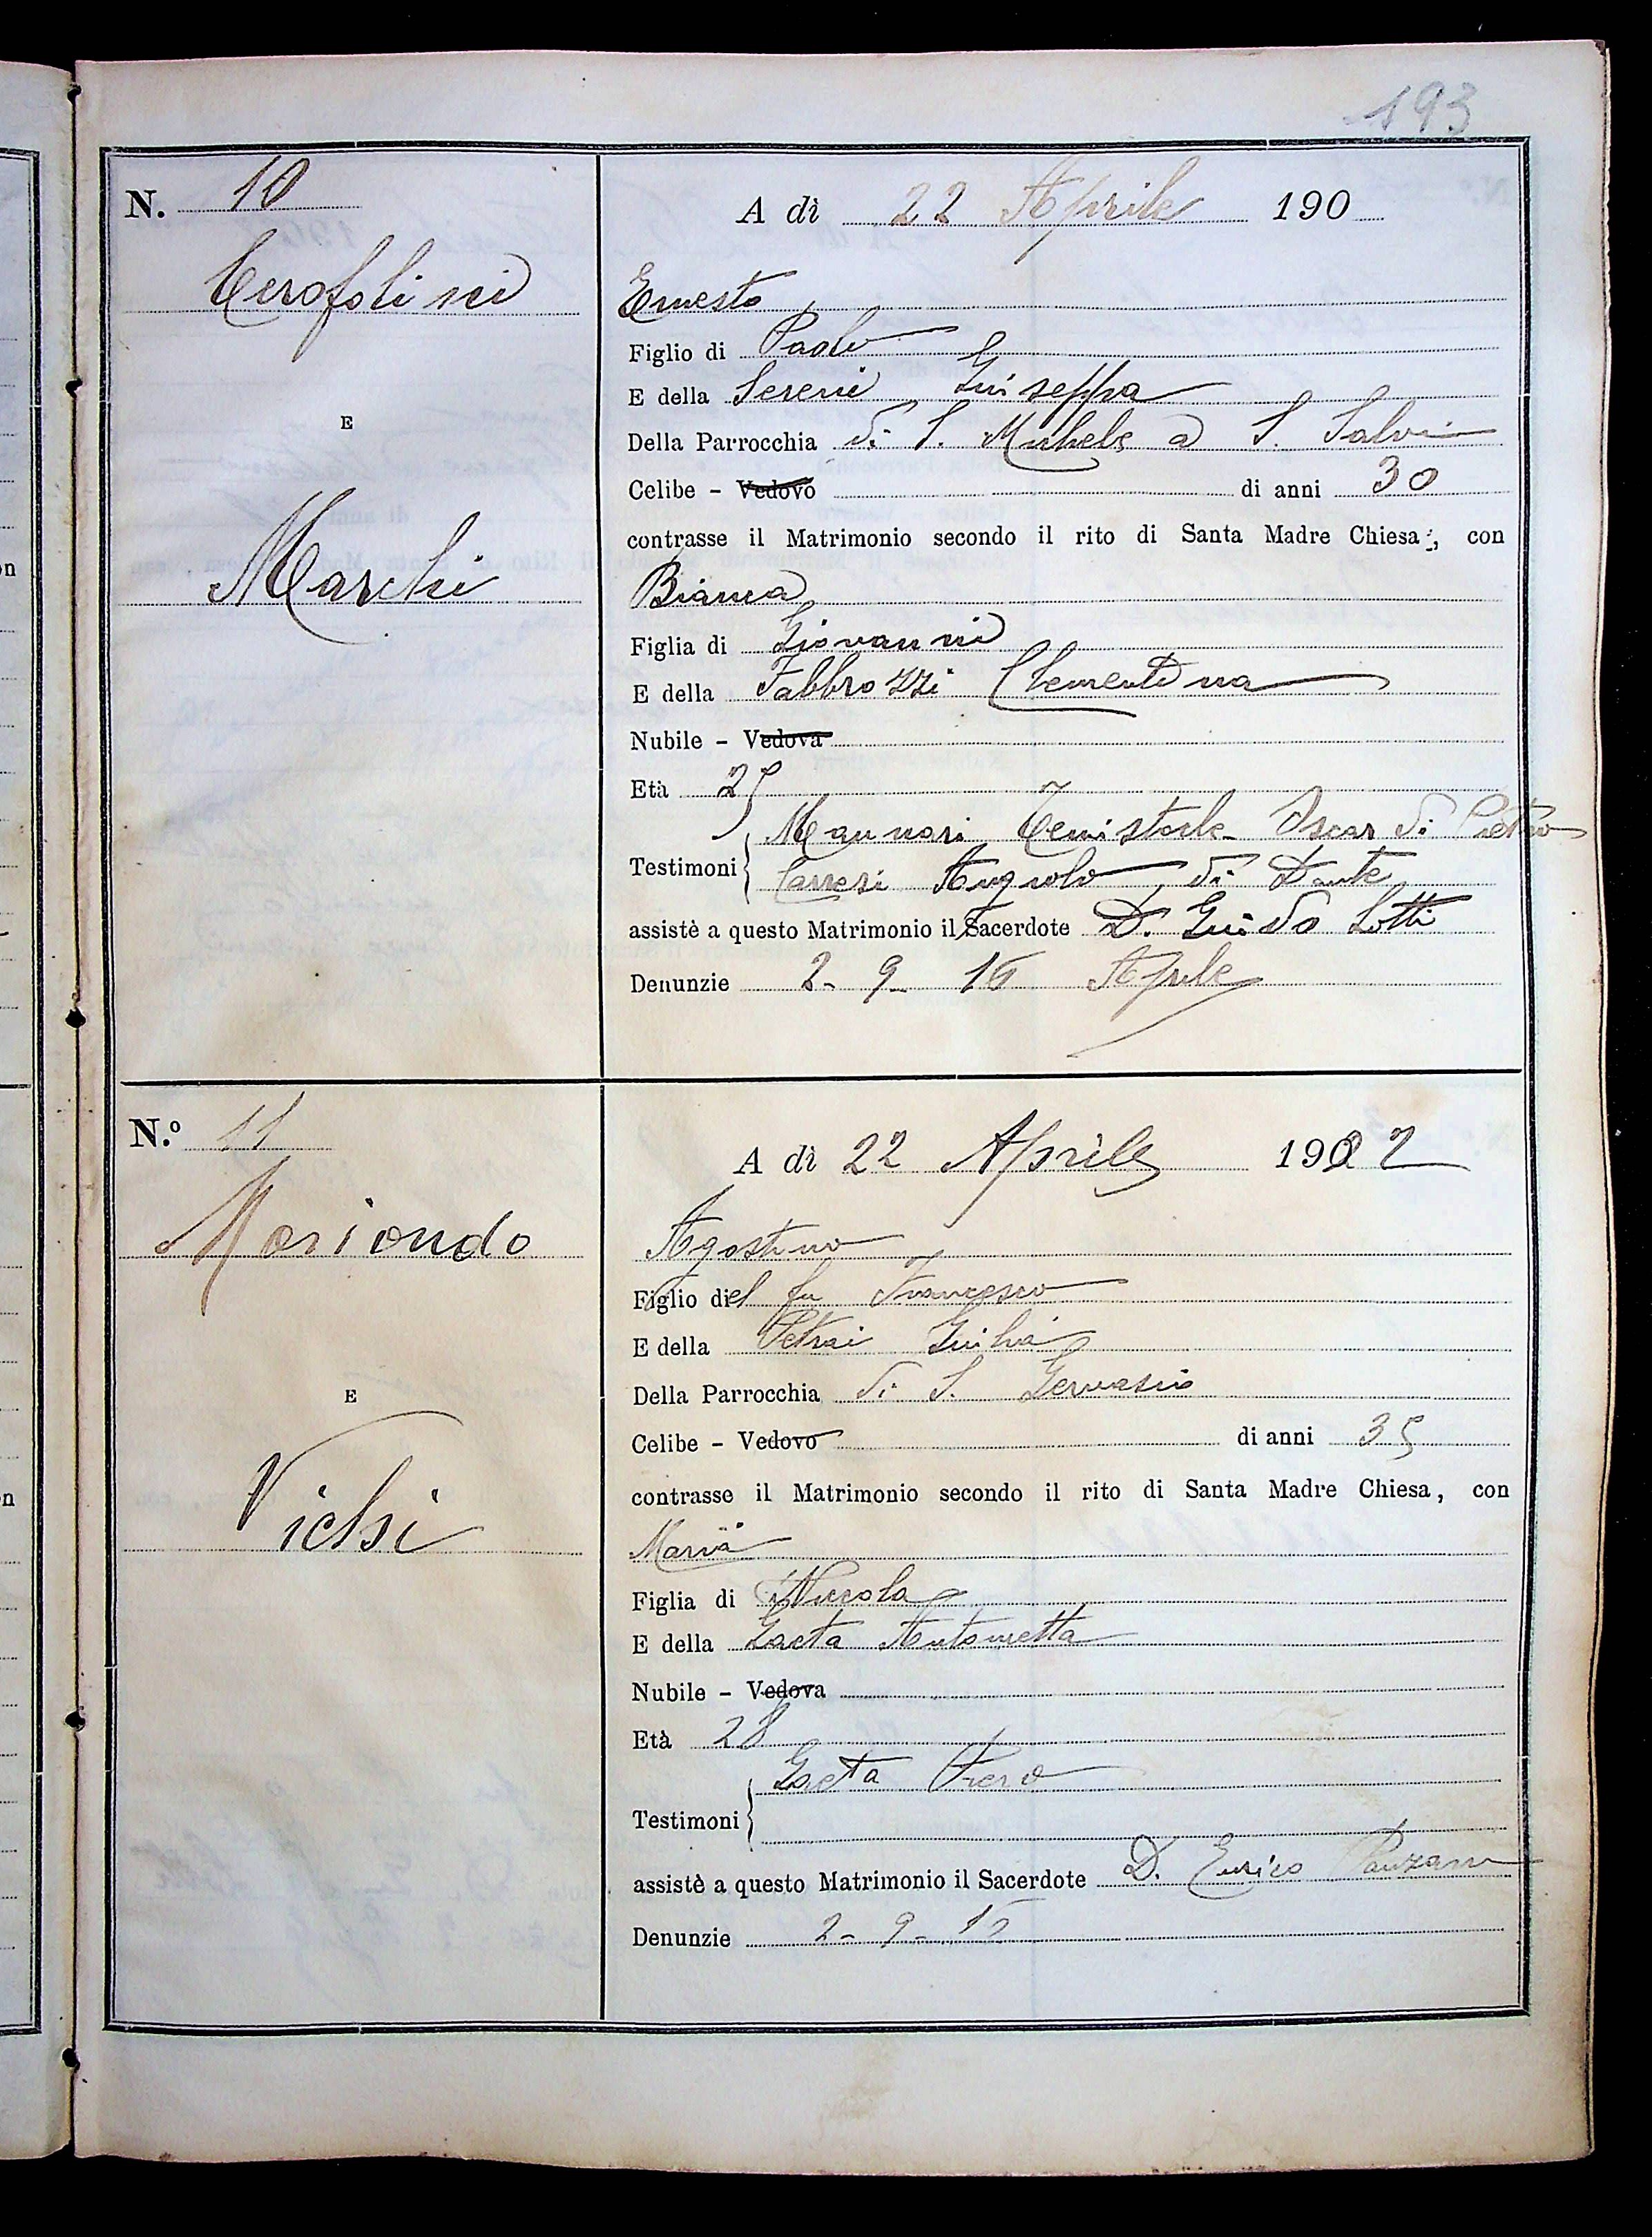 193
N. 10
A dì 22 Aprile 190
Cerofolini
Ernesto
Figlio di Paolo
E della Sereni Giuseppa
E
Della Parrocchia di S. Michele a S. Salvi
Celibe - Vedovo di anni 30
contrasse il Matrimonio secondo il rito di Santa Madre Chiesa, con
Marchi
Bianca
Figlia di Giovanni
E della Fabbrozzi Clementina
Nubile - Vedova
Età 25
Mannori Temistocle Oscar di Pietro
Testimoni
Carresi Angiolo, di Dante
assistè a questo Matrimonio il Sacerdote D. Guido Lotti
Denunzie 2 - 9 - 16 Aprile
N.º 11
A dì 22 Aprile 1922
Moriondo
Agostino
Figlio del fu Francesco
E della Petrai Giulia
Della Parrocchia di S. Gervasio
E
Celibe - Vedovo di anni 35
contrasse il Matrimonio secondo il rito di Santa Madre Chiesa, con
Vichi
Maria
Figlia di Niccola
E della Gaeta Antonietta
Nubile - Vedova
Età 28
Gaeta
Testimoni
assistè a questo Matrimonio il Sacerdote D. Enrico Panzani
Denunzie 2 - 9 - 16